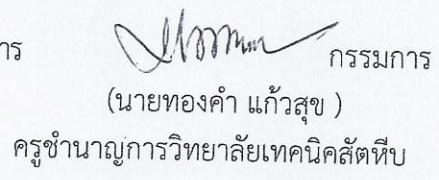 าร กรรมการ
(นายทองคำ แก้วสุข )
ครูชำนาญการวิทยาลัยเทคนิคสัตหีบ